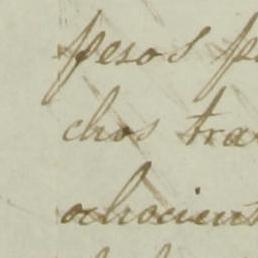 pesos p
chos tra
ochociens